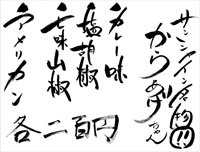 サンシャイン名物!!!
からあげちゃん
カレー味
塩胡椒
七味山椒
アメリカン
各二百円